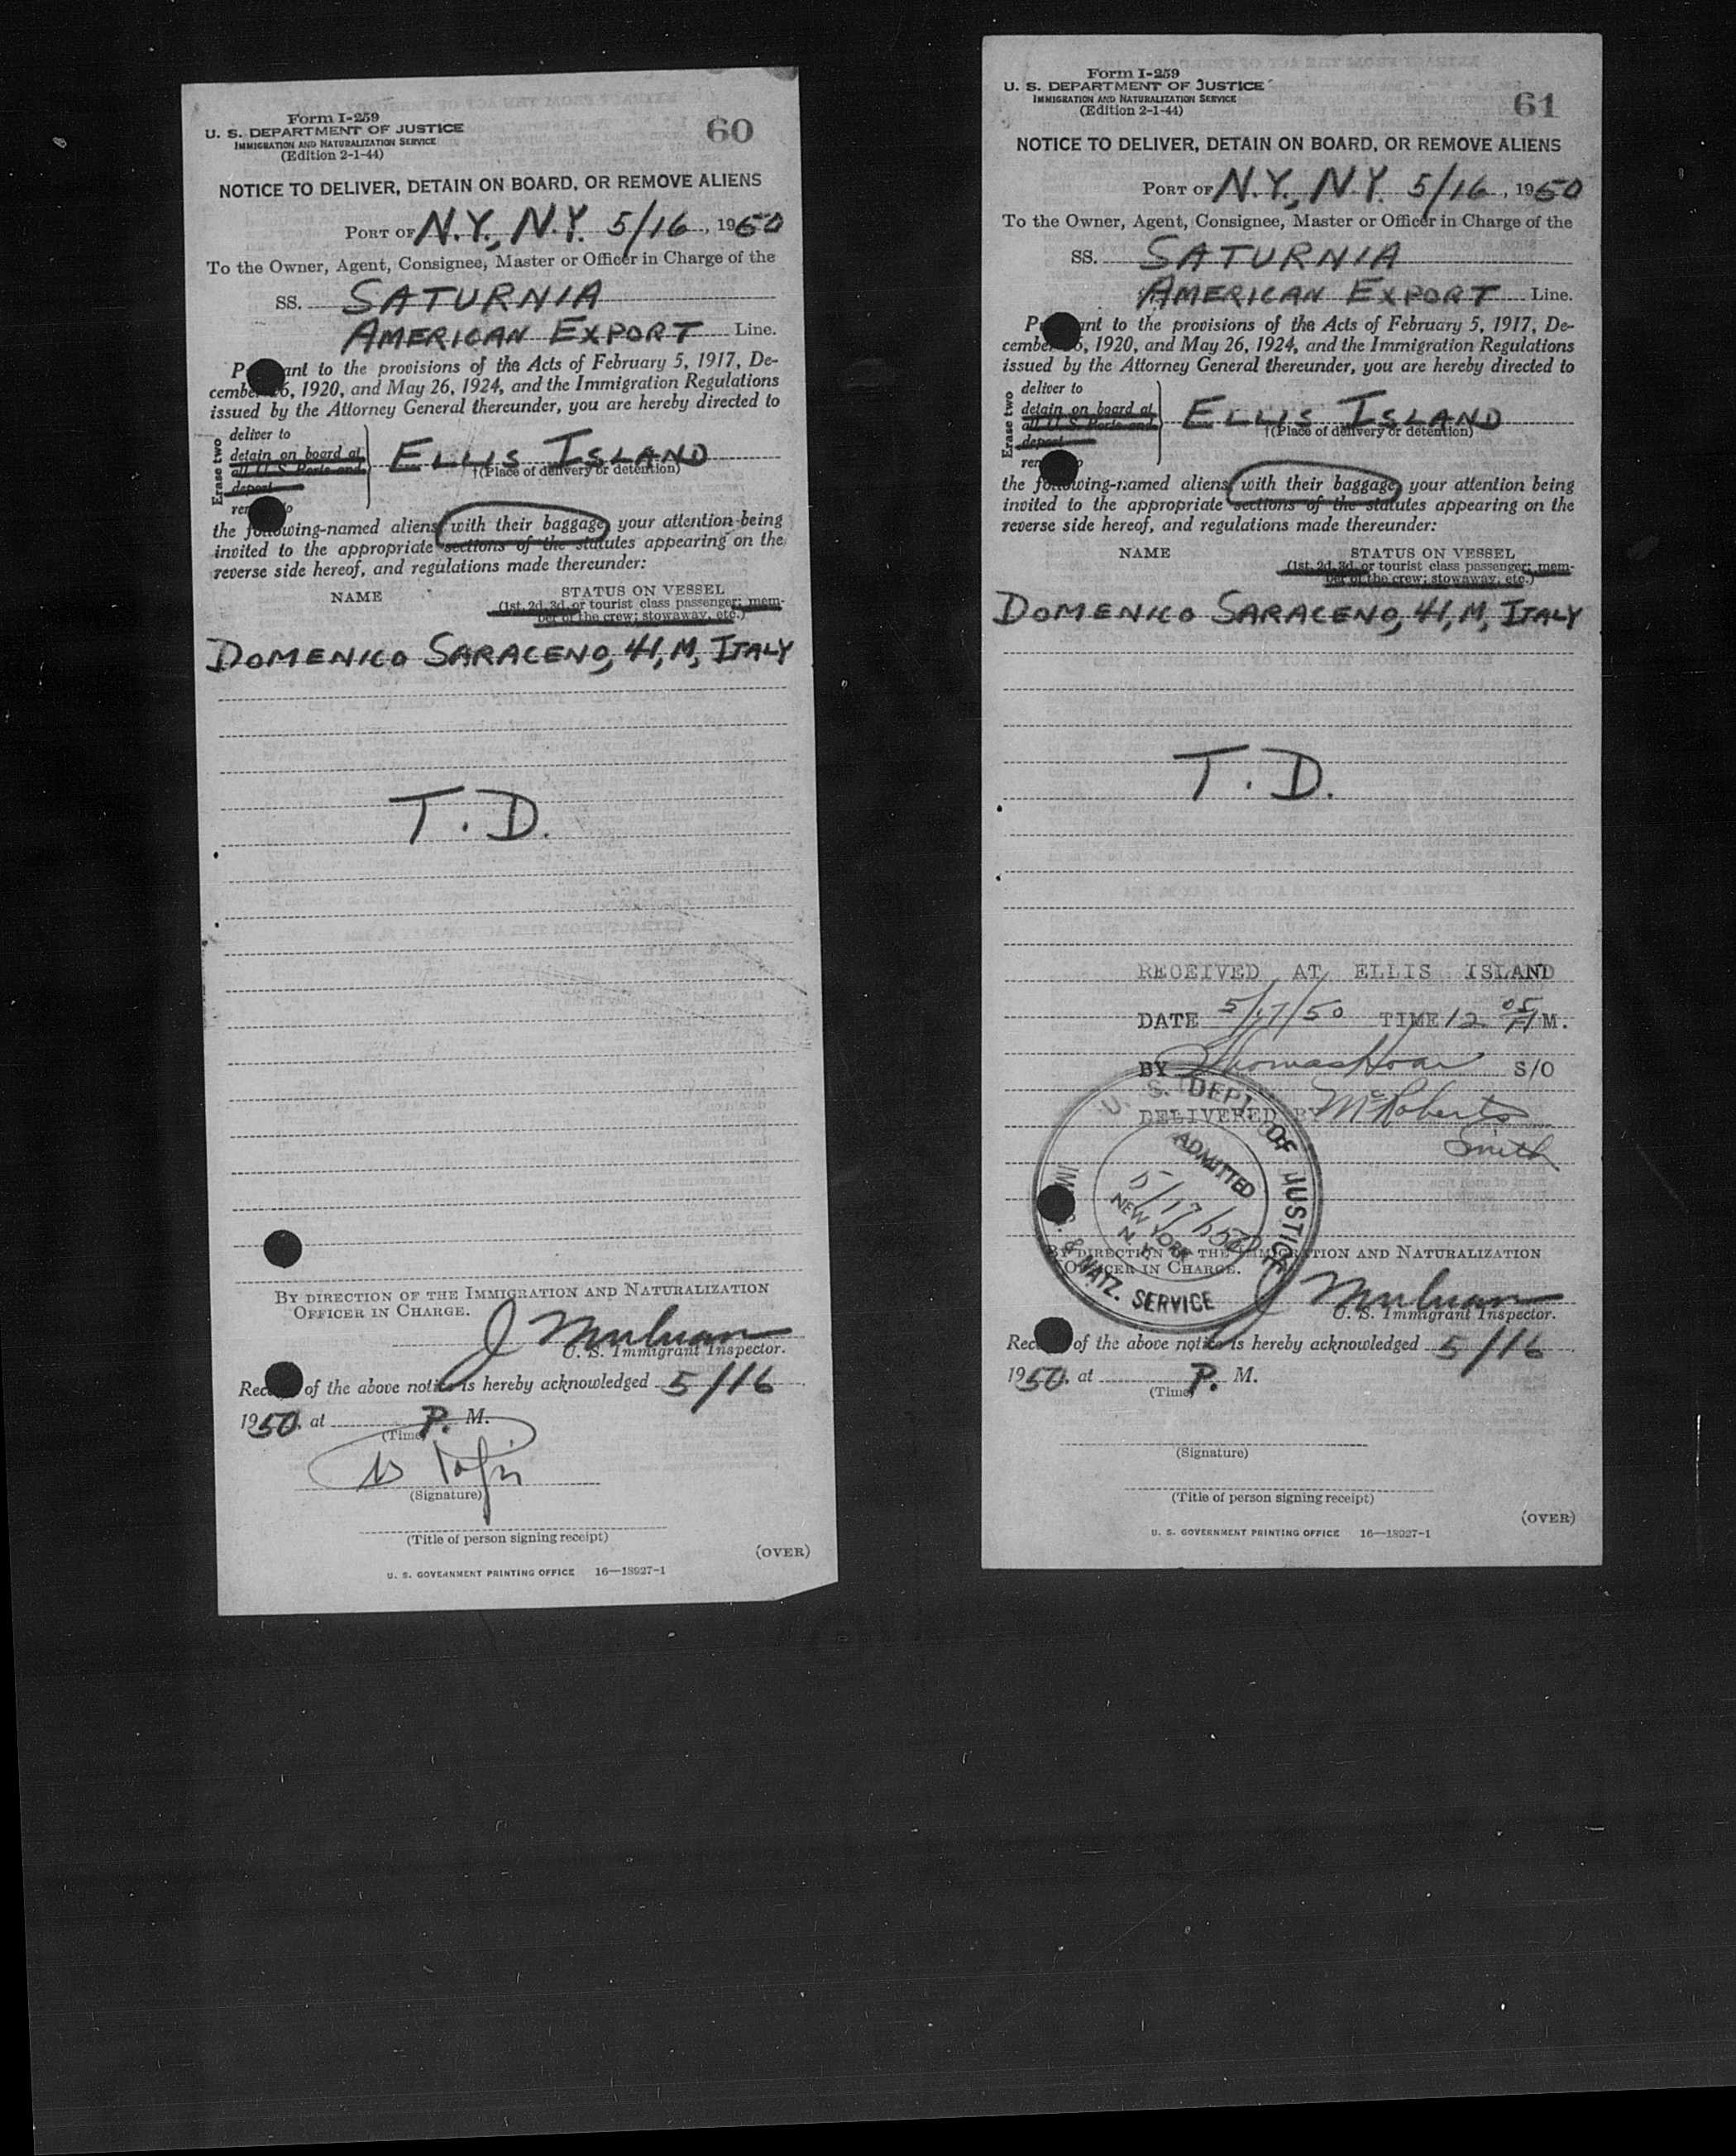 Form I-259
U. S. DEPARTMENT OF JUSTICE
IMMIGRATION AND NATURALIZATION SERVICE
(Edition 2-1-44)
60
NOTICE TO DELIVER, DETAIN ON BOARD, OR REMOVE ALIENS
PORT OF N.Y., N.Y. 5/16, 1950
To the Owner, Agent, Consignee, Master or Officer in Charge of the
SS. SATURNIA
AMERICAN EXPORT Line.
P ant to the provisions of the Acts of February 5, 1917, De-
cember 6, 1920, and May 26, 1924, and the Immigration Regulations
issued by the Attorney General thereunder, you are hereby directed to
Erase two
deliver to
detain on board at
all U. S. Ports and
deport
ELLIS ISLAND
†(Place of delivery or detention)
the following-named aliens with their baggage, your attention being
invited to the appropriate sections of the statutes appearing on the
reverse side hereof, and regulations made thereunder:
NAME STATUS ON VESSEL
(1st, 2d, 3d, or tourist class passenger; mem-
ber of the crew; stowaway, etc.)
DOMENICO SARACENO, 41, M, ITALY
T. D.
BY DIRECTION OF THE IMMIGRATION AND NATURALIZATION
OFFICER IN CHARGE.
U. S. Immigrant Inspector.
Rec of the above notice is hereby acknowledged 5/16
1950, at P. M.
(Time)
(Signature)
(Title of person signing receipt)
(OVER)
U. S. GOVERNMENT PRINTING OFFICE 16—18927-1
Form I-259
U. S. DEPARTMENT OF JUSTICE
IMMIGRATION AND NATURALIZATION SERVICE
(Edition 2-1-44)
61
NOTICE TO DELIVER, DETAIN ON BOARD, OR REMOVE ALIENS
PORT OF N.Y., N.Y. 5/16, 1950
To the Owner, Agent, Consignee, Master or Officer in Charge of the
SS. SATURNIA
AMERICAN EXPORT Line.
P ant to the provisions of the Acts of February 5, 1917, De-
cember 6, 1920, and May 26, 1924, and the Immigration Regulations
issued by the Attorney General thereunder, you are hereby directed to
Erase two
deliver to
detain on board at
all U. S. Ports and
deport
ELLIS ISLAND
†(Place of delivery or detention)
the following-named aliens with their baggage, your attention being
invited to the appropriate sections of the statutes appearing on the
reverse side hereof, and regulations made thereunder:
NAME STATUS ON VESSEL
(1st, 2d, 3d, or tourist class passenger; mem-
ber of the crew; stowaway, etc.)
DOMENICO SARACENO, 41, M, ITALY
T. D.
RECEIVED AT ELLIS ISLAND
DATE 5/17/50 TIME 12 05 A M.
BY Thomas Hoar S/O
DELIVERED BY McRoberts
Smith
U. S. DEPT. OF JUSTICE
ADMITTED
5/17/50
NEW YORK
N. Y.
IMM. & NATZ. SERVICE
BY DIRECTION OF THE IMMIGRATION AND NATURALIZATION
OFFICER IN CHARGE.
U. S. Immigrant Inspector.
Rec of the above notice is hereby acknowledged 5/16
1950, at P. M.
(Time)
(Signature)
(Title of person signing receipt)
(OVER)
U. S. GOVERNMENT PRINTING OFFICE 16—18927-1